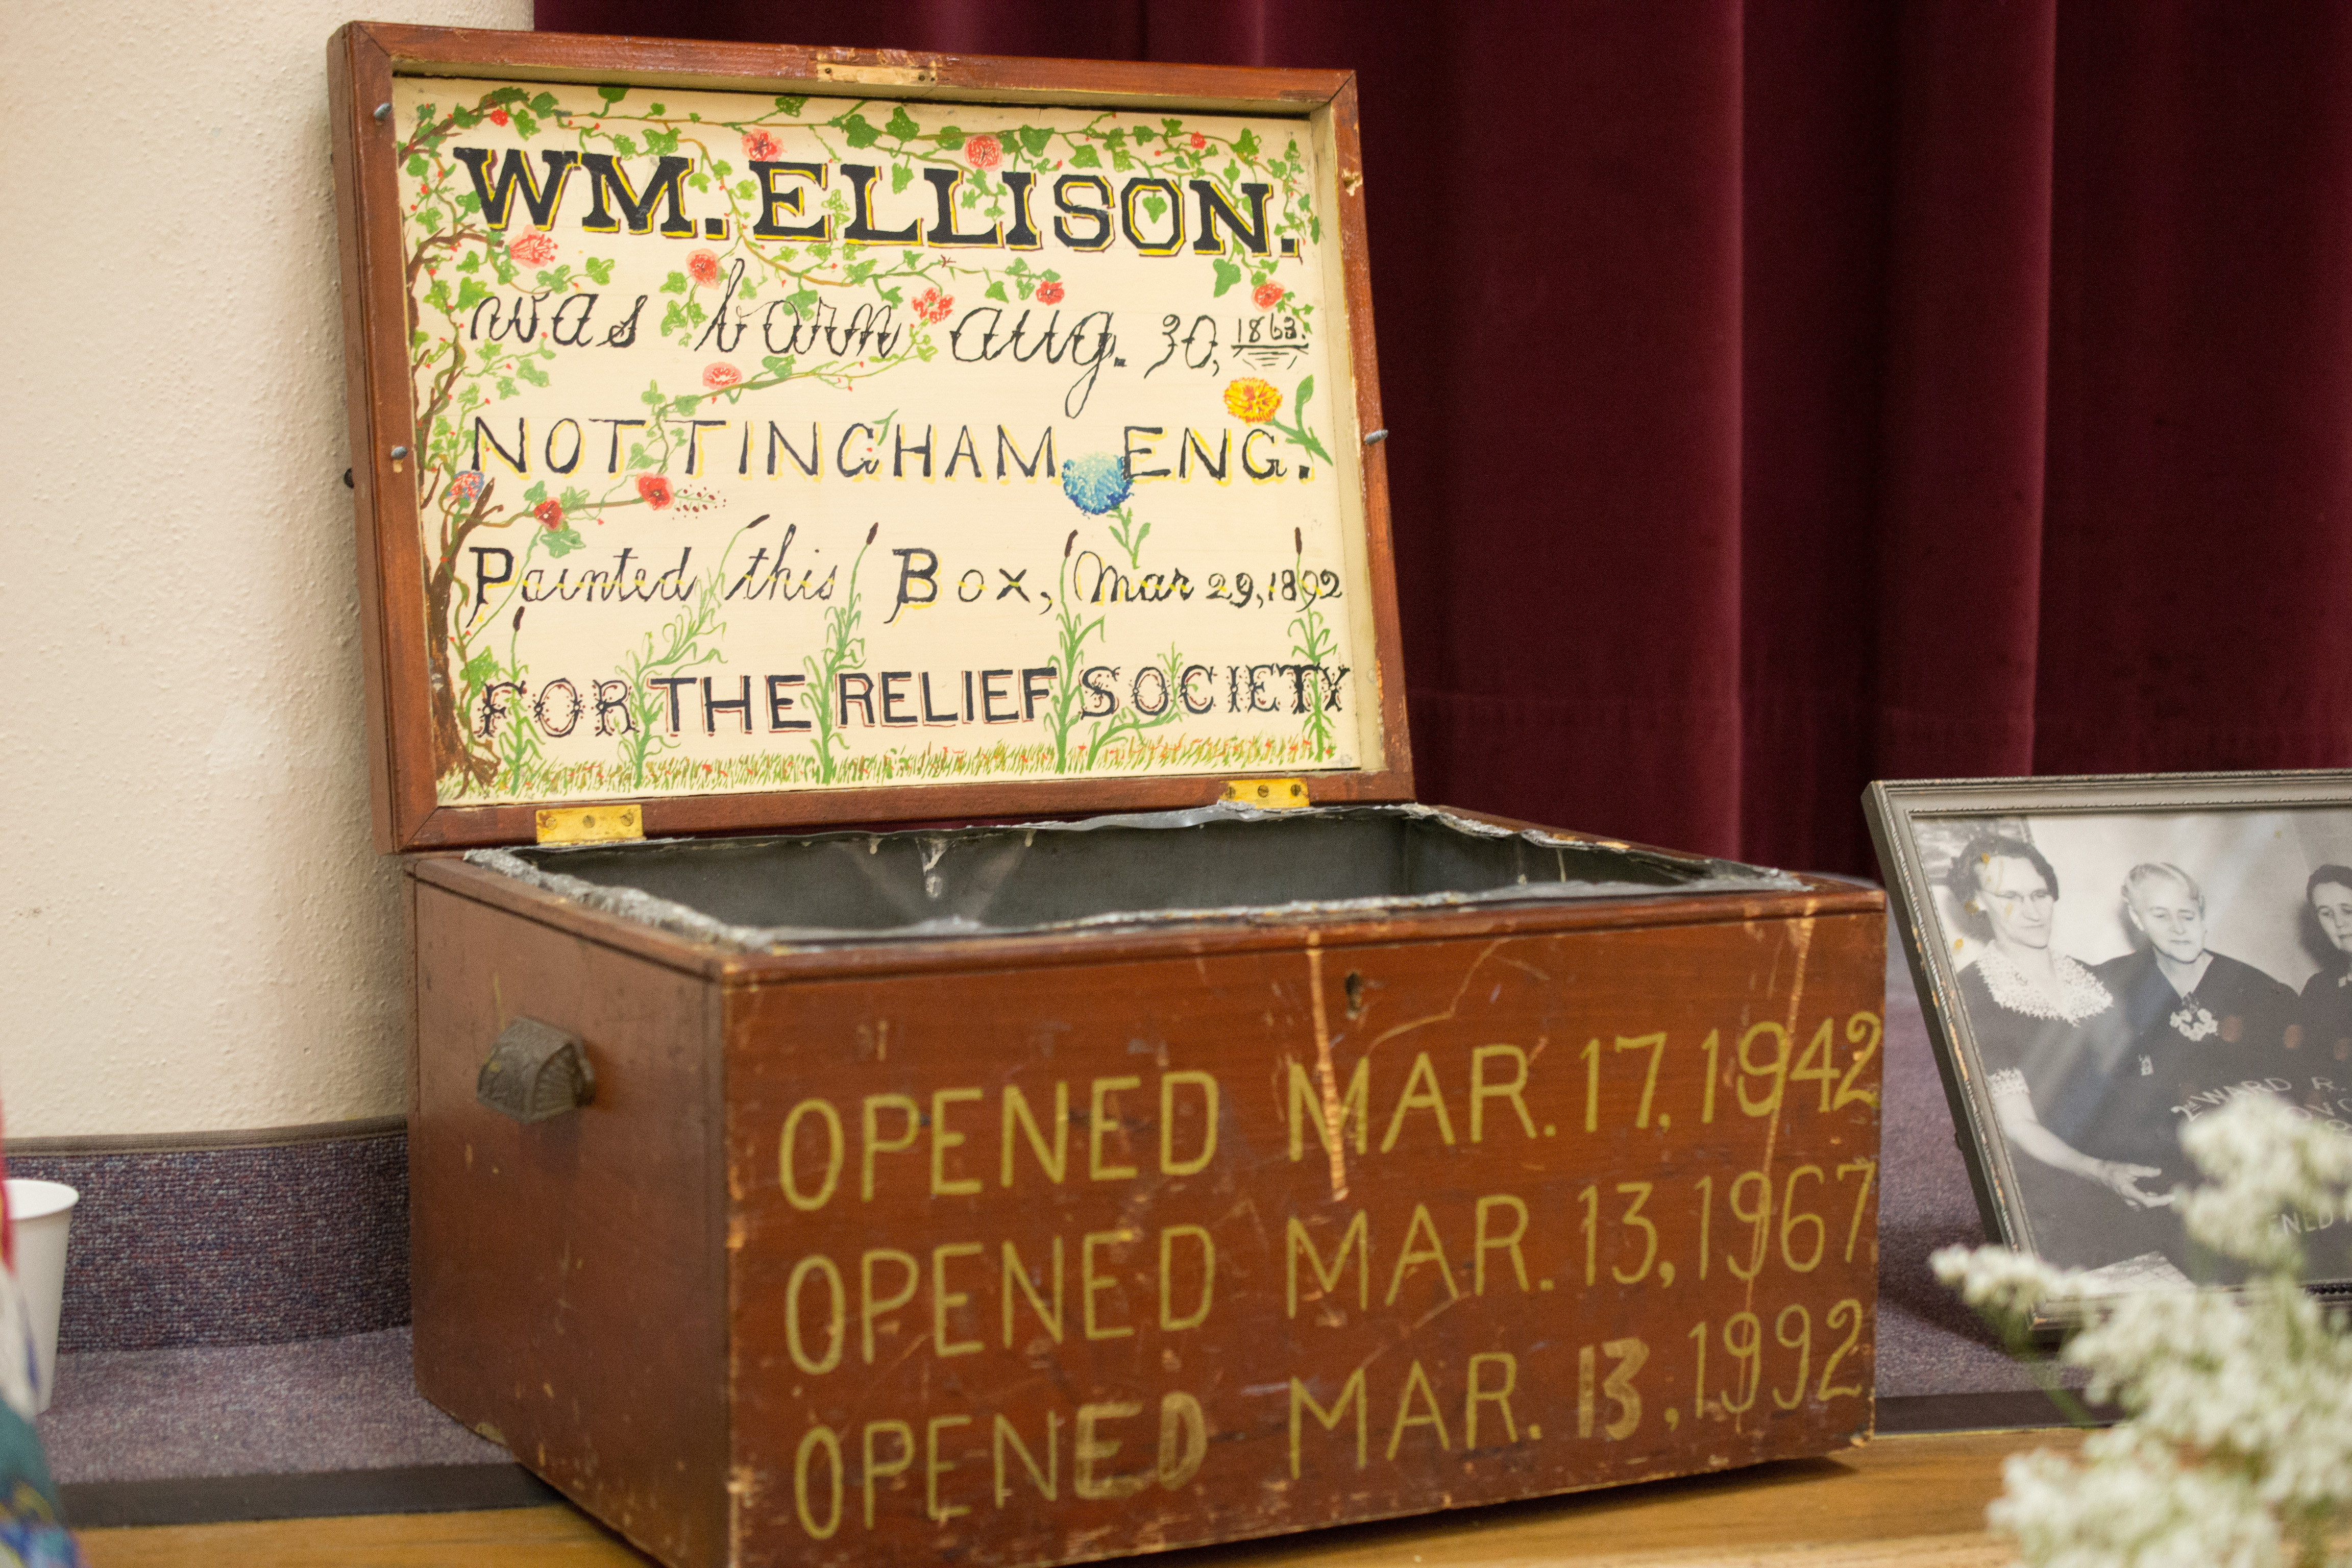 WM. ELLISON.
was born aug. 30, 1863.
NOTTINGHAM ENG.
Painted this Box, Mar 29, 1892
FOR THE RELIEF SOCIETY
OPENED MAR. 17, 1942
OPENED MAR. 13, 1967
OPENED MAR. 13, 1992
2ND WARD R